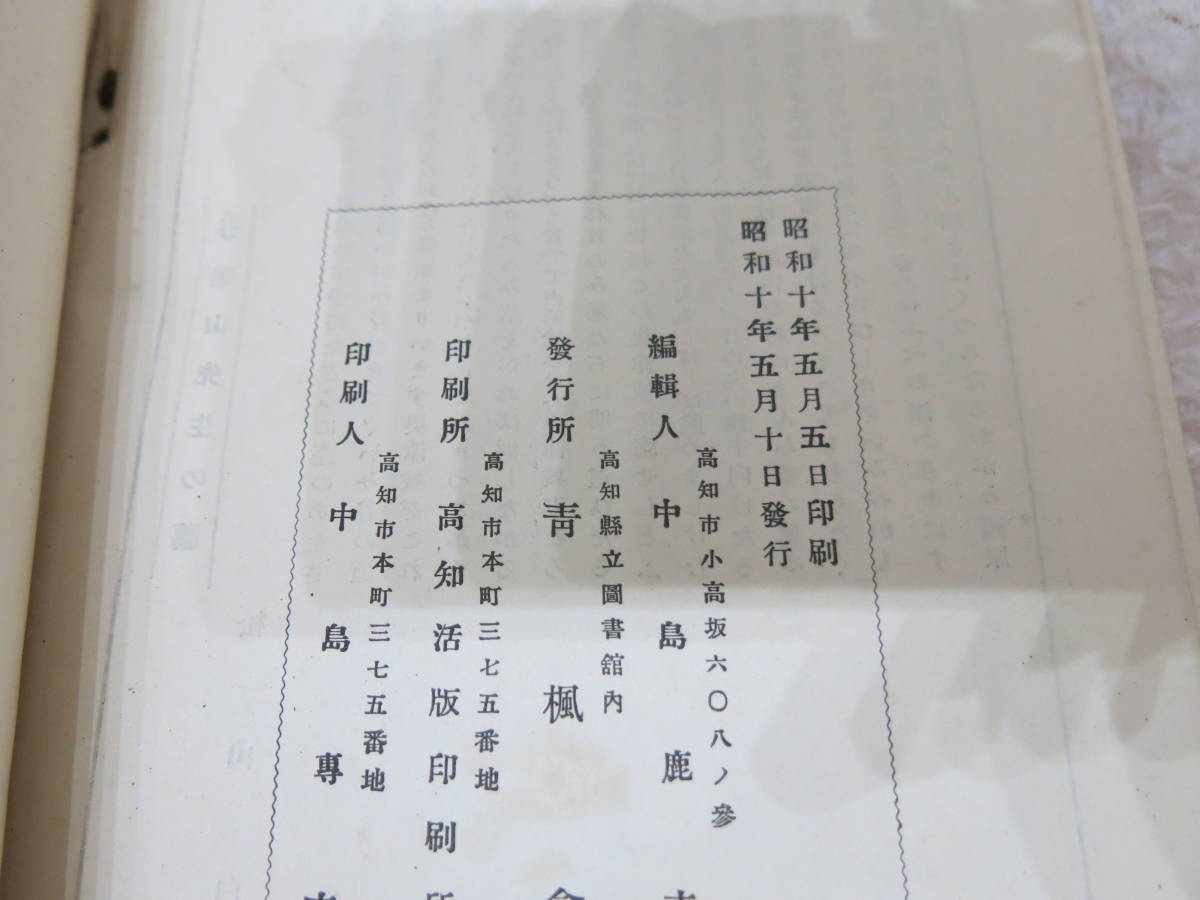 昭和十年五月五日印刷
昭和十年五月十日發行
高知市小高坂六〇八ノ參
編輯人 中島鹿
高知縣立圖書館內
發行所 靑楓會
高知市本町三七五番地
印刷所 高知活版印刷所
高知市本町三七五番地
印刷人 中島專